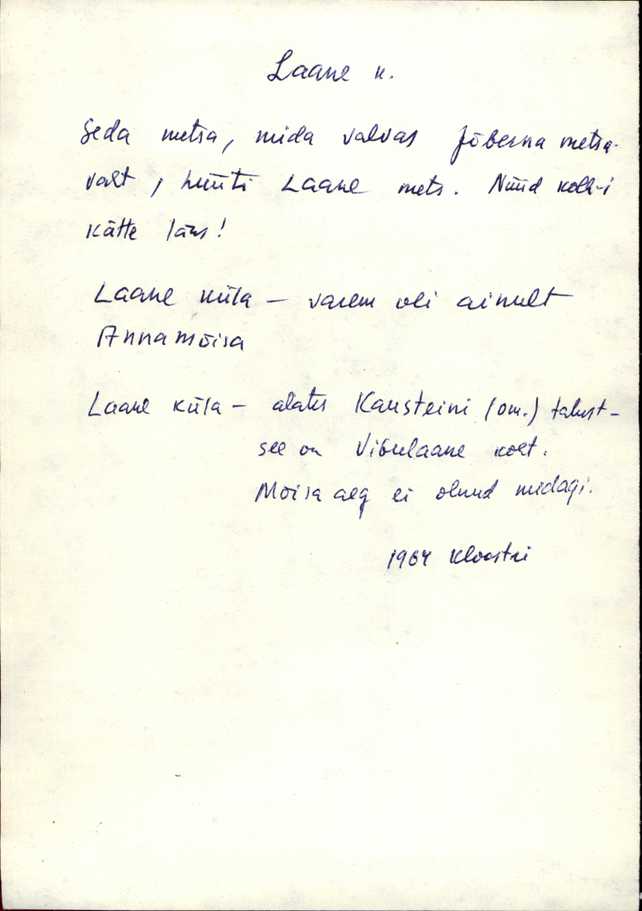 Laane k.
Seda metsa, mida valvas Jõberna metsa-
vaht, hüüti Laane mets. Nüüd kolh-i
kätte läks!
Laane küla – varem oli ainult
Annamõisa
Laane küla – alates Kausteini (om.) talust –
see on Vibulaane koht.
Mõisa aeg ei olnud midagi.
1964 Kloostri